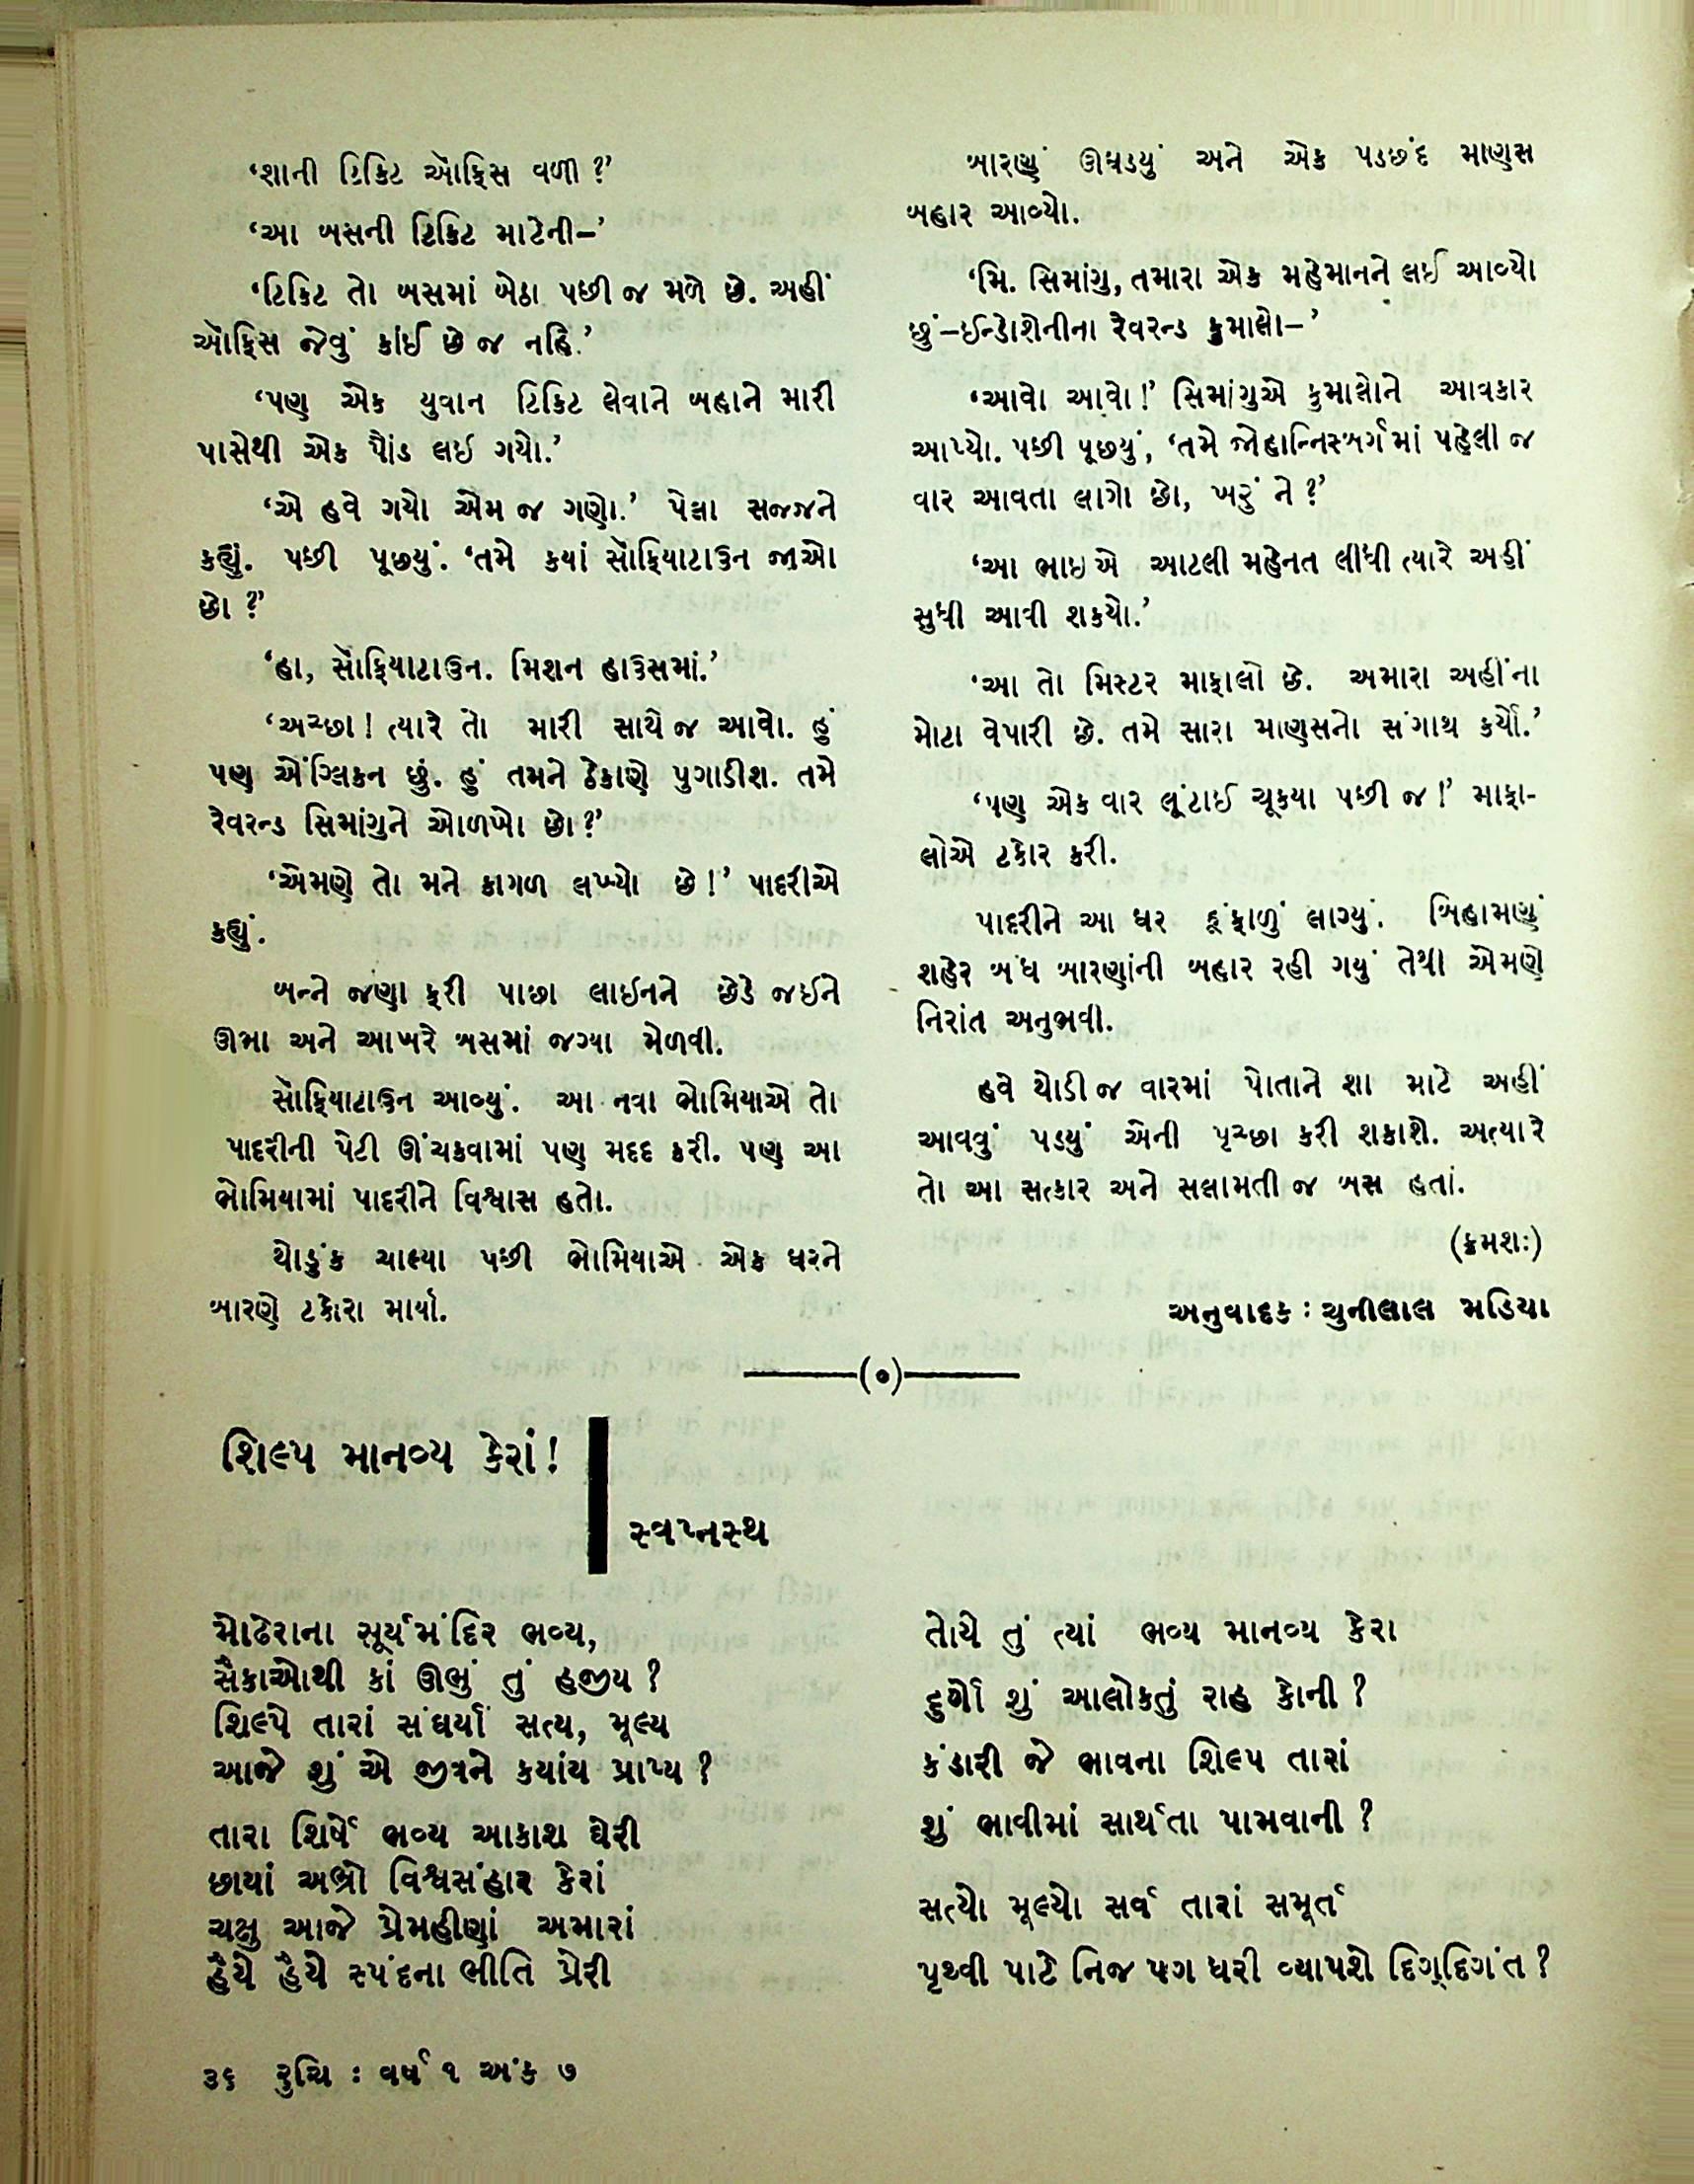 ‘શાની ટિકિટ ઑફિસ વળી ?’
‘આ બસની ટિકિટ માટેની–’
‘ટિકિટ તો બસમાં બેઠા પછી જ મળે છે. અહીં
ઑફિસ જેવું કાંઈ છે જ નહિ.’
‘પણ એક યુવાન ટિકિટ લેવાને બહાને મારી
પાસેથી એક પૌંડ લઈ ગયો.’
‘એ હવે ગયો એમ જ ગણો.’ પેલા સજ્જને
કહ્યું. પછી પૂછયું. ‘તમે કયાં સૉફિયાટાઉન જાઓ
છો ?’
‘હા, સૉફિયાટાઉન. મિશન હાઉસમાં.’
‘અચ્છા ! ત્યારે તો મારી સાથે જ આવો. હું
પણ એંગ્લિકન છું. હું તમને ઠેકાણે પુગાડીશ. તમે
રેવરન્ડ સિમાંગુને ઓળખો છો ?’
‘એમણે તો મને કાગળ લખ્યો છે !’ પાદરીએ
કહ્યું.
બન્ને જણા ફરી પાછા લાઈનને છેડે જઈને
ઊભા અને આખરે બસમાં જગ્યા મેળવી.
સૉફિયાટાઉન આવ્યું. આ નવા ભોમિયાએ તો
પાદરીની પેટી ઊંચકવામાં પણ મદદ કરી. પણ આ
ભોમિયામાં પાદરીને વિશ્વાસ હતો.
થોડુંક ચાલ્યા પછી ભોમિયાએ એક ઘરને
બારણે ટકોરા માર્યા.
બારણું ઊઘડયું અને એક પડછંદ માણસ
બહાર આવ્યો.
‘મિ. સિમાંગુ, તમારા એક મહેમાનને લઈ આવ્યો
છું–ઈન્ડોશેનીના રેવરન્ડ કુમાલો–’
‘આવો આવો !’ સિમાંગુએ કુમાલોને આવકાર
આપ્યો. પછી પૂછયું, ‘તમે જોહાન્નિસ્બર્ગમાં પહેલી જ
વાર આવતા લાગો છો, ખરું ને ?’
‘આ ભાઇએ આટલી મહેનત લીધી ત્યારે અહીં
સુધી આવી શકયો.’
‘આ તો મિસ્ટર માફાલો છે. અમારા અહીંના
મોટા વેપારી છે. તમે સારા માણસનો સંગાથ કર્યો.’
‘પણ એક વાર લૂંટાઈ ચૂકયા પછી જ !’ માફા-
લોએ ટકોર કરી.
પાદરીને આ ઘર હૂંફાળું લાગ્યું. બિહામણું
શહેર બંધ બારણાંની બહાર રહી ગયું તેથી એમણે
નિરાંત અનુભવી.
હવે થોડી જ વારમાં પોતાને શા માટે અહીં
આવવું પડયું એની પૃચ્છા કરી શકાશે. અત્યારે
તો આ સત્કાર અને સલામતી જ બસ હતાં.
(ક્રમશઃ)
અનુવાદક : ચુનીલાલ મડિયા
——(૦)——
શિલ્પ માનવ્ય કેરાં !
સ્વપ્નસ્થ
મોઢેરાના સૂર્યમંદિર ભવ્ય,
સૈકાઓથી કાં ઊભું તું હજીય ?
શિલ્પે તારાં સંઘર્યાં સત્ય, મૂલ્ય
આજે શું એ જીવને કયાંય પ્રાપ્ય ?
તારા શિર્ષે ભવ્ય આકાશ ઘેરી
છાયાં અભ્રો વિશ્વસંહાર કેરાં
ચક્ષુ આજે પ્રેમહીણાં અમારાં
હૈયે હૈયે સ્પંદના ભીતિ પ્રેરી
તોયે તું ત્યાં ભવ્ય માનવ્ય કેરા
દુર્ગો શું આલોકતું રાહ કોની ?
કંડારી જે ભાવના શિલ્પ તારાં
શું ભાવીમાં સાર્થતા પામવાની ?
સત્યો મૂલ્યો સર્વ તારાં સમૂર્ત
પૃથ્વી પાટે નિજ પગ ધરી વ્યાપશે દિગ્દિગંત ?
૩૬ રુચિ : વર્ષ ૧ અંક ૭